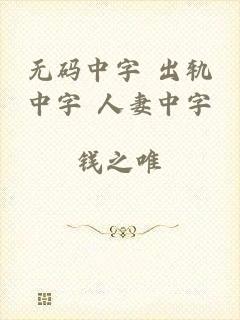 无码中字 出轨
中字 人妻中字
钱之唯